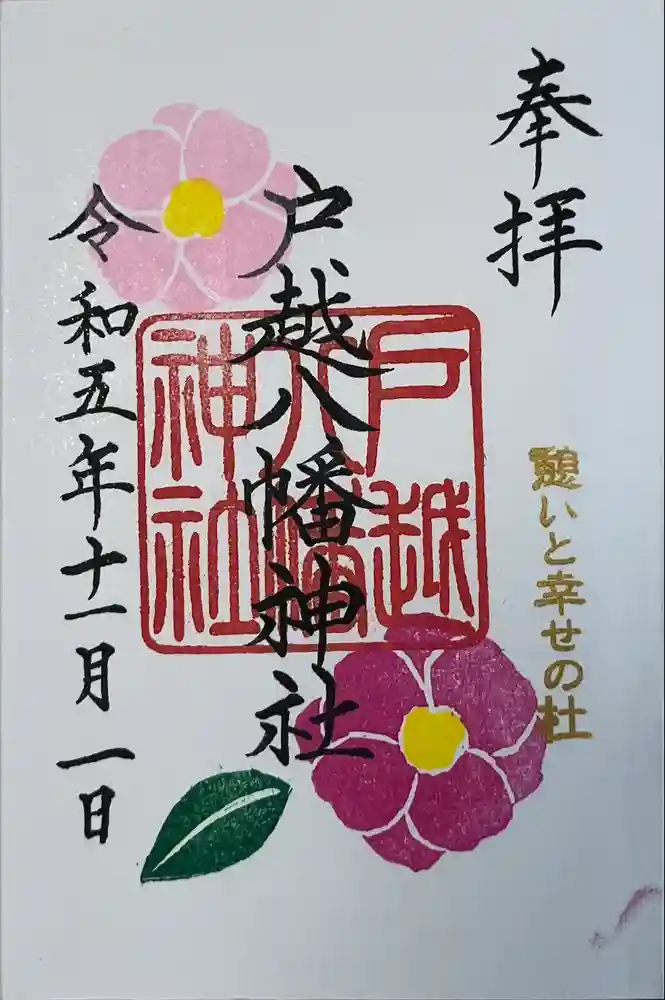 奉拝
憩いと幸せの杜
戸越八幡神社
戸越
八幡
神社
令和五年十一月一日